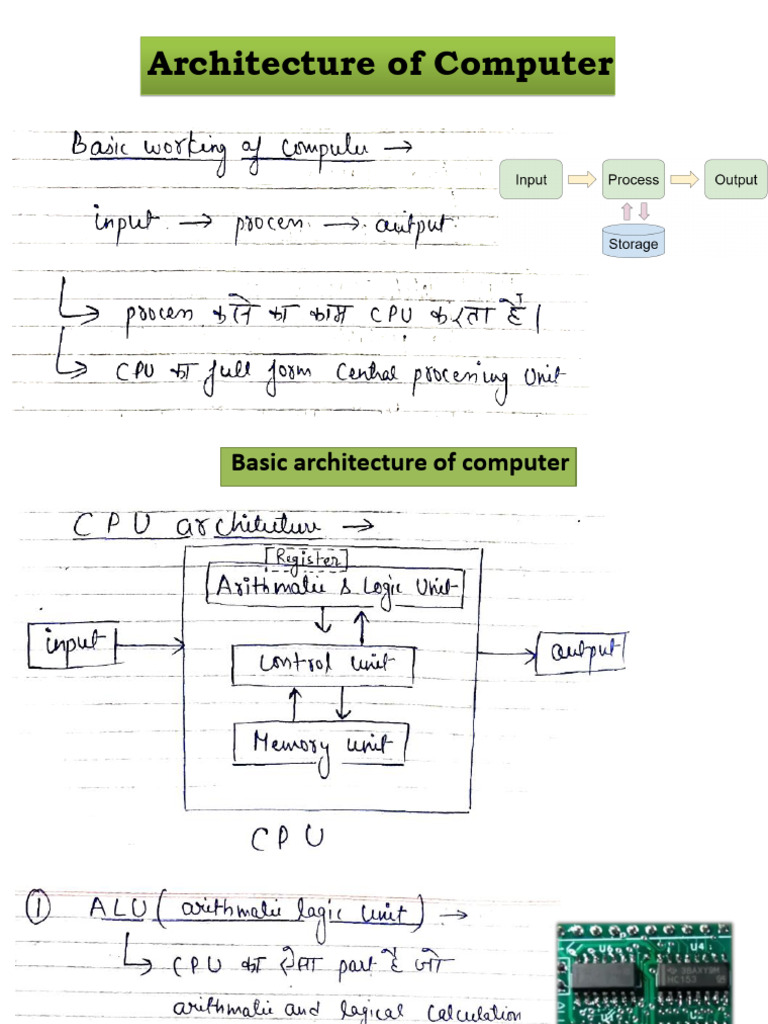 Architecture of Computer
Basic working of computer →
Input Process Output
Storage
input → process → output
↳ process करने का काम CPU करता है।
↳ CPU का full form Central processing Unit
Basic architecture of computer
CPU architecture →
Register
Arithmatic & Logic Unit
input
Control unit
output
Memory unit
CPU
① ALU (arithmatic logic Unit) →
↳ CPU का ऐसा part है जो
arithmatic and logical calculation
U6 U4
38AXY9M
HC153